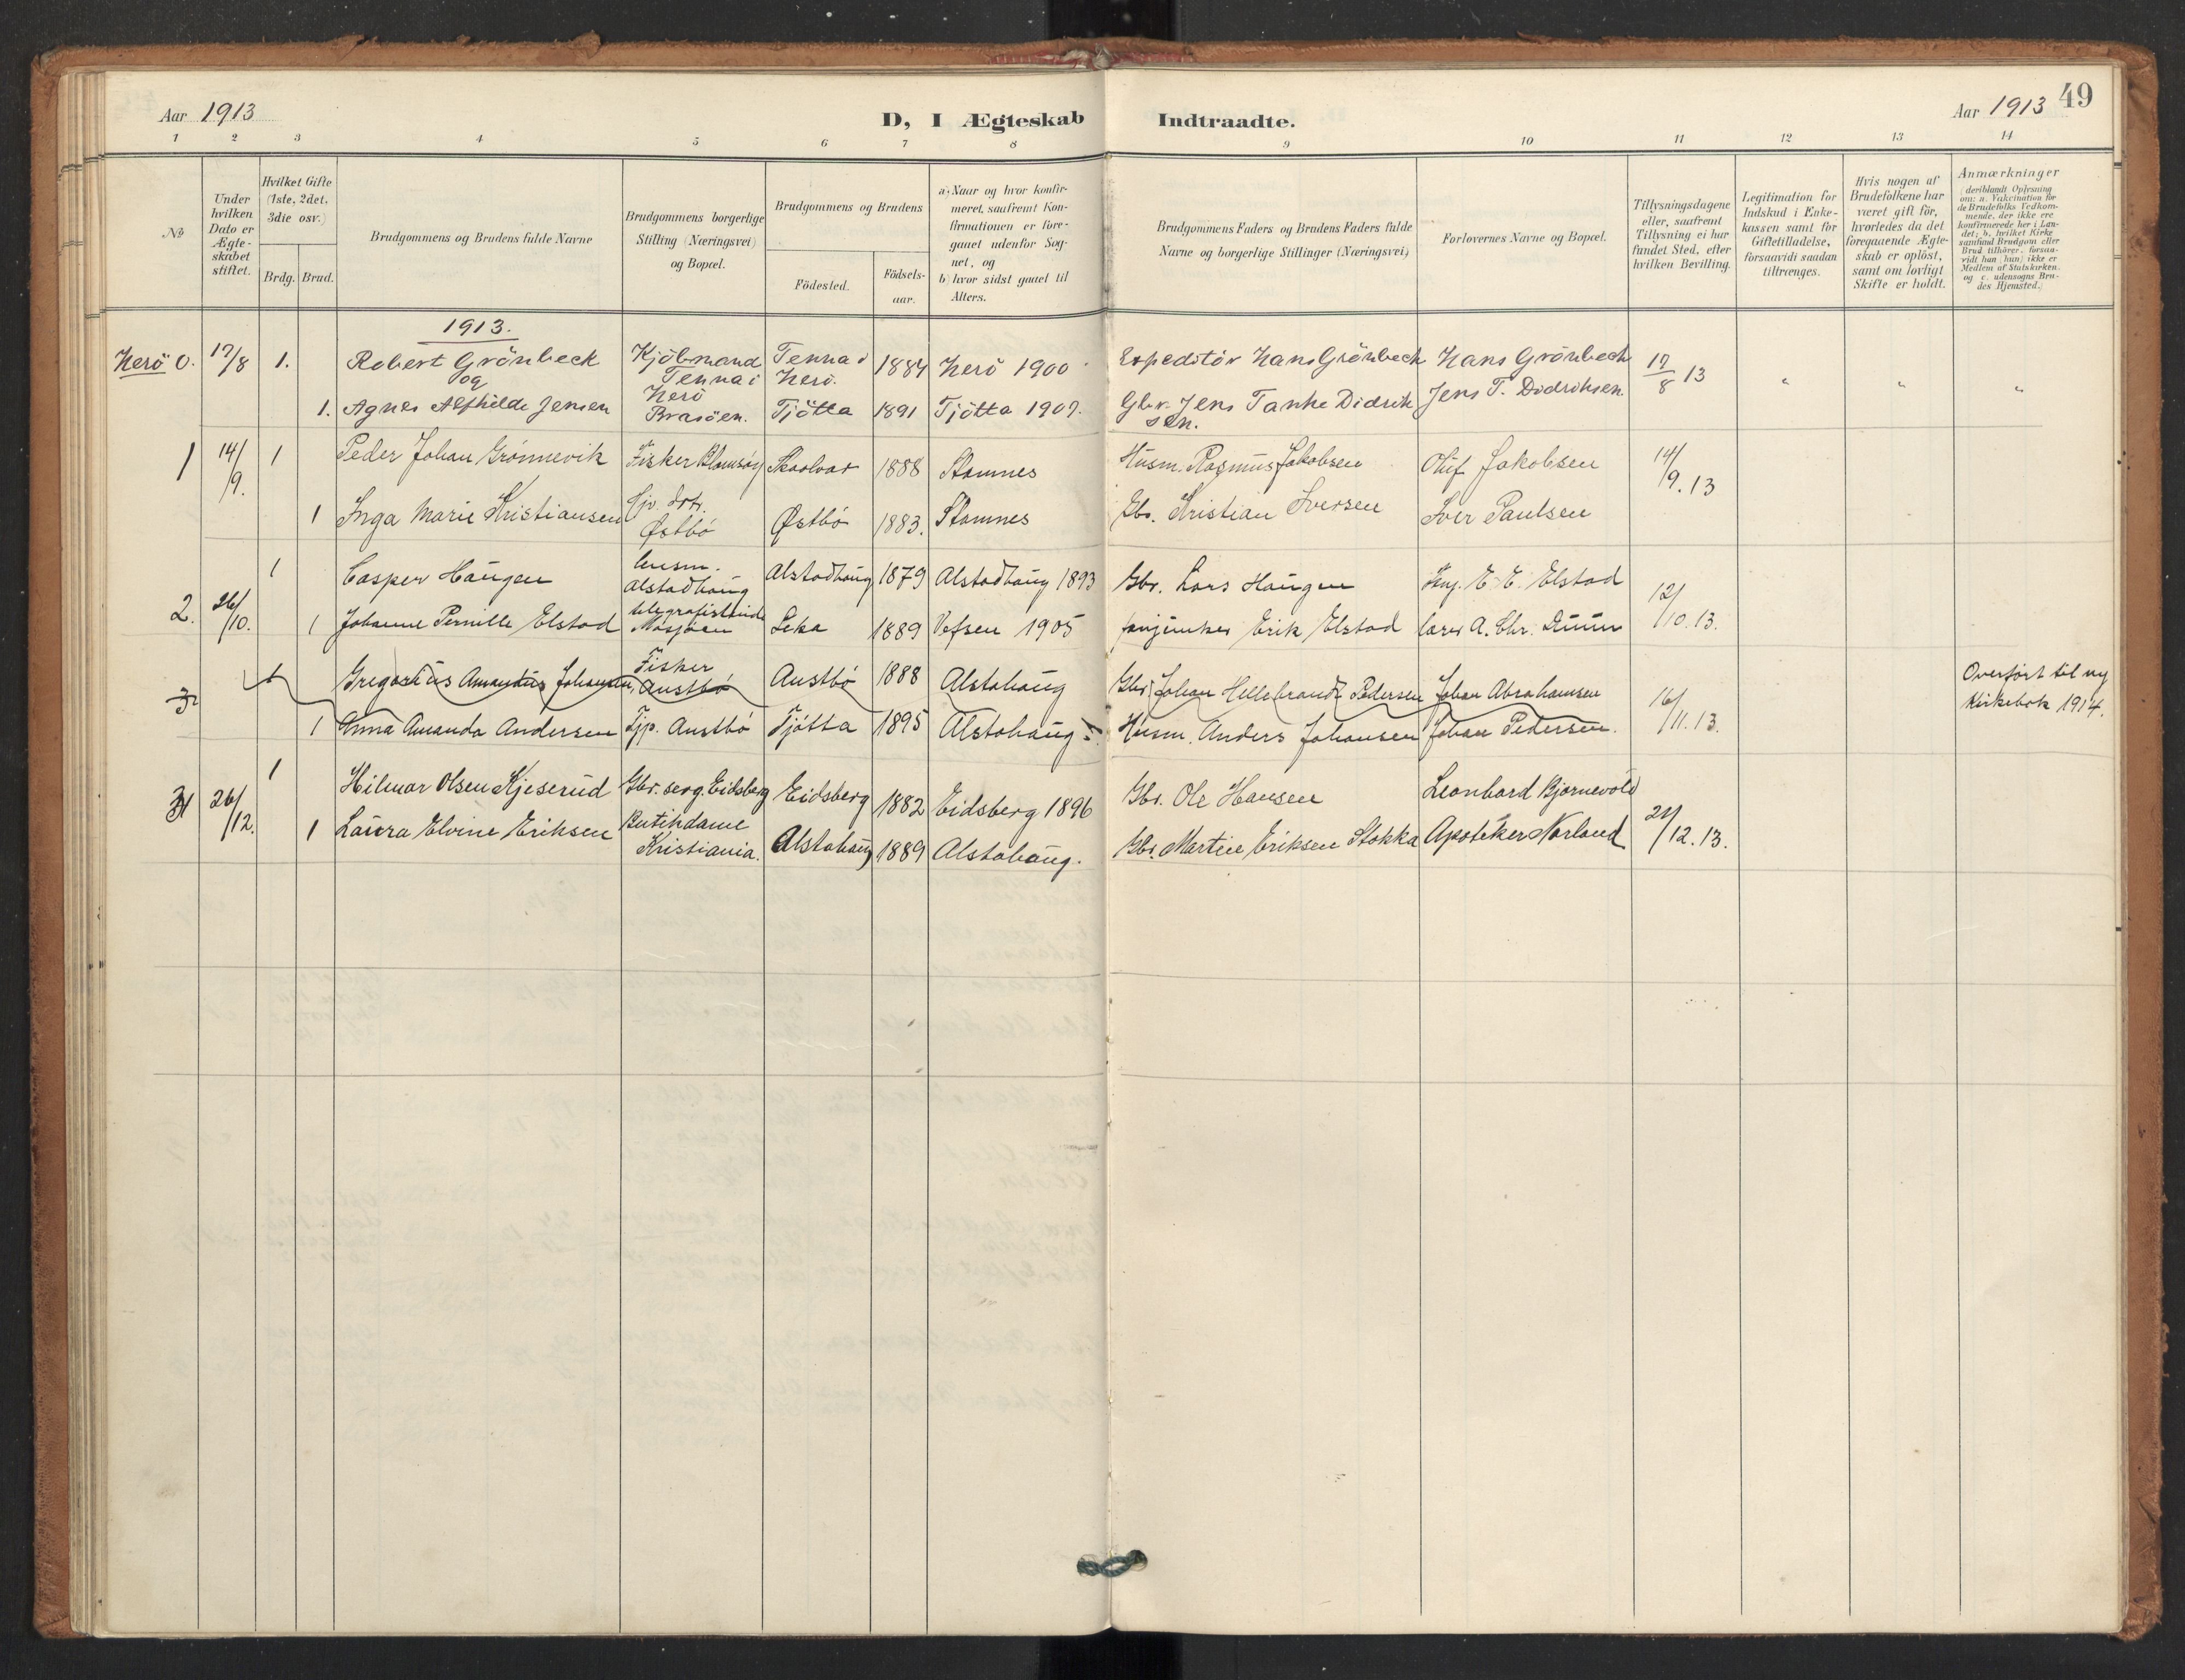 Aar 1913
D, I Ægteskab Indtraadte.
Aar 1913 49
1 2 3 4 5 6 7 8 9 10 11 12 13 14
No
Under hvilken Dato er Ægteskabet stiftet.
Hvilket Gifte (1ste, 2det, 3die osv.)
Brdg. Brud.
Brudgommens og Brudens fulde Navne
Brudgommens borgerlige Stilling (Næringsvei) og Bopæl.
Brudgommens og Brudens
Födested.
Födselsaar.
a) Naar og hvor konfirmeret, saafremt Konfirmationen er foregaaet udenfor Sognet, og
b) hvor sidst gaaet til Alters.
Brudgommens Faders og Brudens Faders fulde Navne og borgerlige Stillinger (Næringsvei)
Forlovernes Navne og Bopæl.
Tillysningsdagene eller, saafremt Tillysning ei har fundet Sted, efter hvilken Bevilling.
Legitimation for Indskud i Enkekassen samt for Giftetilladelse, forsaavidt saadan tiltrænges.
Hvis nogen af Brudefolkene har været gift för, hvorledes da det foregaaende Ægteskab er oplöst, samt om lovligt Skifte er holdt.
Anmærkninger (deriblandt Oplysning om: a. Vaksination for de Brudefolks Vedkommende, der ikke ere konfirmerede her i Landet; b. hvilket Kirkesamfund Brudgom eller Brud tilhörer, forsaavidt han (hun) ikke er Medlem af Statskirken, og c. udensogns Brudes Hjemsted.)
1913.
Herö 0. 17/8 1. Robert Grönbeck Kjöbmand Tenna i Herö Tenna i Herö. 1884 Herö 1900 Expeditör Hans Grönbeck Hans Grönbeck 17/8 13 " " "
og
1. Agnes Alfhilde Jensen Brasöen. Tjötta 1891 Tjötta 1907. Gbr. Jens Tanke Didriksen. Jens T. Didriksen
1 14/9. 1 Peder Johan Grønnevik Fisker Blomsøy Skaalvær 1888 Stamnes Husm. Rasmus Jakobsen Oluf Jakobsen 14/9.13
1 Inga Marie Kristiansen Gjv. dtr. Østbø Østbø 1883. Stamnes Gbr. Kristian Iversen Iver Paulsen
2. 26/10. 1 Casper Haugen Lensm. Alstadhaug Alstadhaug 1879 Alstadhaug 1893 Gbr. Lars Haugen Ing. E. E. Elstad 12/10.13.
1 Johanne Pernille Elstad telegrafistinde Mosjøen Leka 1889 Vefsen 1905 fanjunker Erik Elstad A. Chr. Duun
3 1 Gregorius Amandus Johansen Fisker Austbø Austbø 1888 Alstahaug Gbr. Johan Hillebrandt Pedersen Johan Abrahamsen 16/11.13. Overført til ny Kirkebok 1914.
1 Anna Amanda Andersen Tjp. Austbø Tjøtta 1895 Alstahaug Husm. Anders Johansen Johan Pedersen.
3 26/12. 1 Hilmar Olsen Kjeserud Gbr. serg. Eidsberg Eidsberg 1882 Eidsberg 1896 Gbr. Ole Hansen Leonhard Bjørnevold 21/12.13.
1 Laura Elvine Eriksen Butikdame Kristiania. Alstahaug 1889 Alstahaug. Gbr. Martin Eriksen Stokka Apoteker Norland